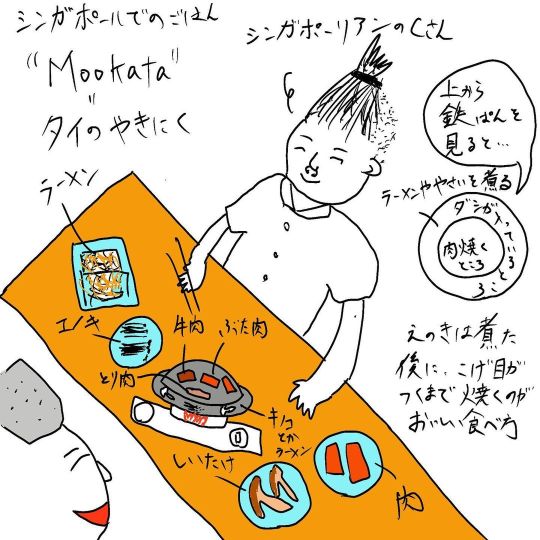 シンガポールでのごはん
"Mookata"
"
タイのやきにく
シンガポーリアンのCさん
上から
鉄ぱんを
見ると…
ラーメンややさいを煮る
ダシが入っているところ
肉焼く
ところ
ラーメン
エノキ
牛肉
ぶた肉
とり肉
キノコ
とか
ラーメン
しいたけ
肉
えのきは煮た
後に、こげ目が
つくまで焼くのが
おいしい食べ方